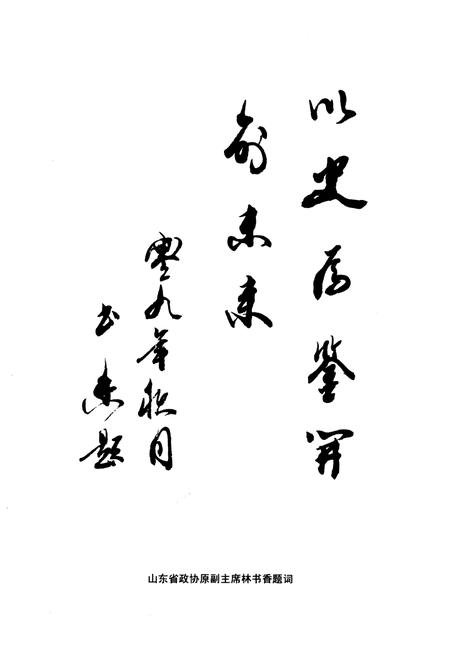 以史为鉴开
创未来
零九年秋月
书香题
山东省政协原副主席林书香题词